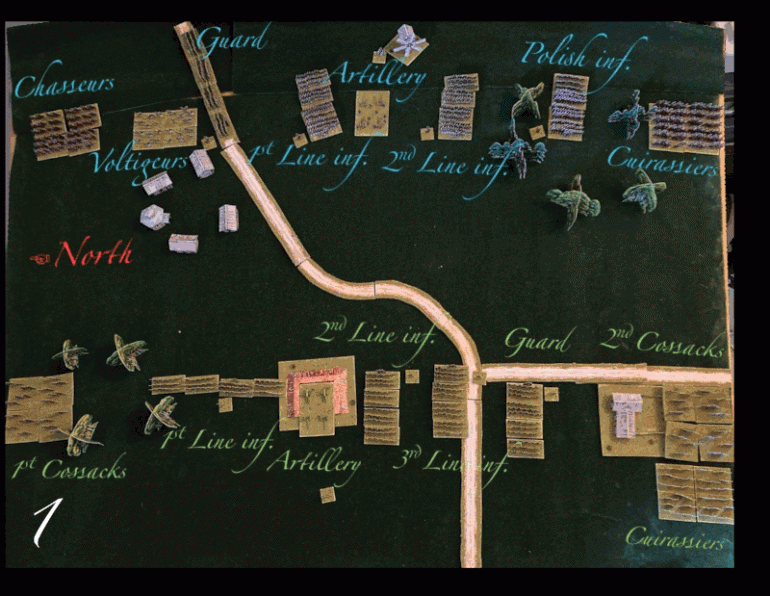 Guard
Chasseurs
Artillery
Polish inf.
Voltigeurs
1st Line inf.
2nd Line inf.
Cuirassiers
North
2nd Line inf.
Guard
2nd Cossacks
1st Line inf.
1st Cossacks
Artillery
3rd Line inf.
1
Cuirassiers